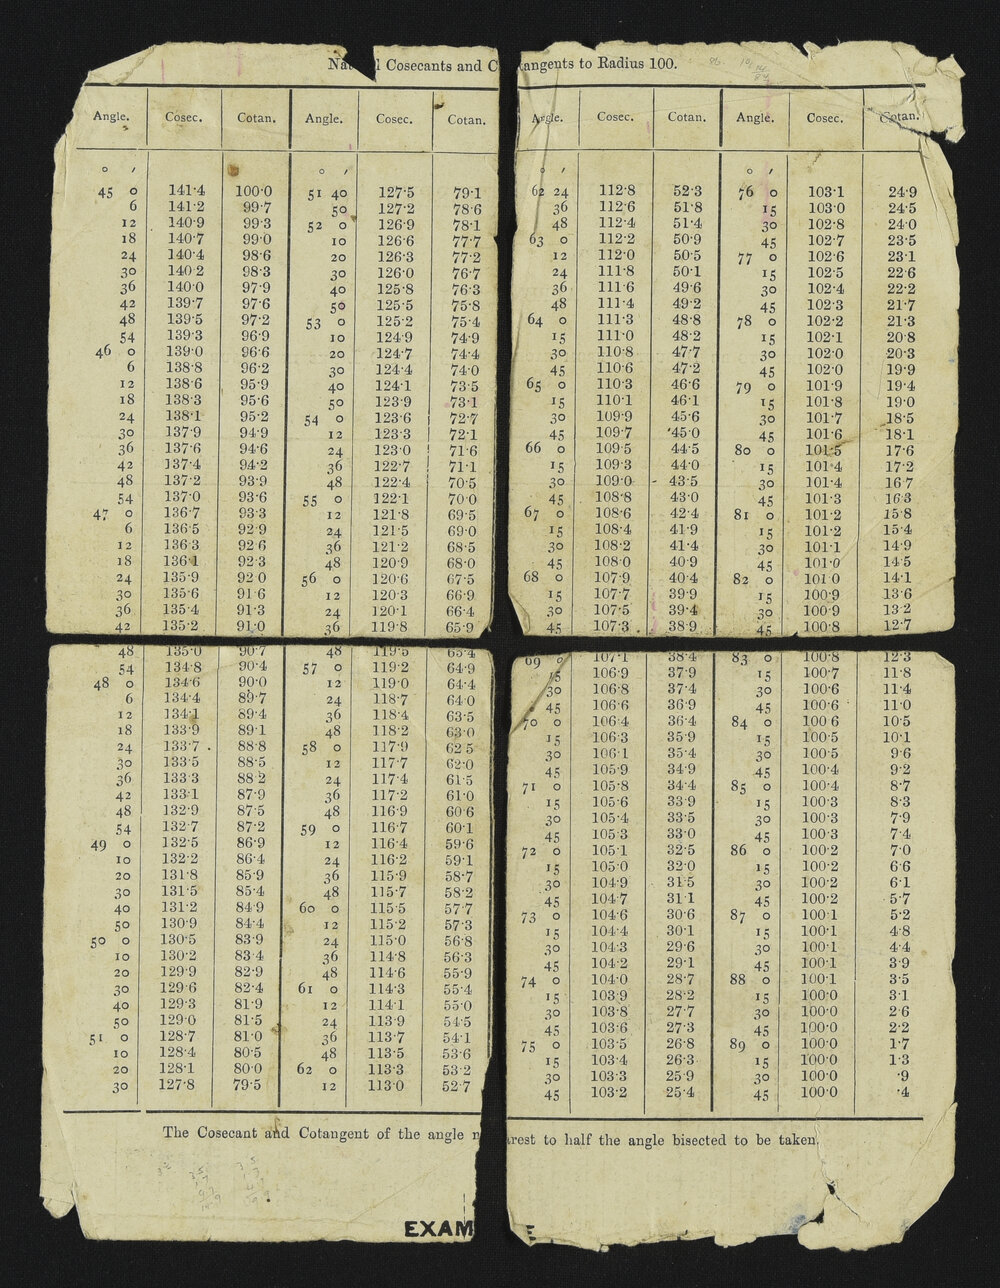 Nat l Cosecants and C tangents to Radius 100.
Angle. Cosec. Cotan. Angle. Cosec. Cotan. Angle. Cosec. Cotan. Angle. Cosec. Cotan.
° ′ ° ′ ° ′ ° ′
45 0 141·4 100·0 51 40 127·5 79·1 62 24 112·8 52·3 76 0 103·1 24·9
6 141·2 99·7 50 127·2 78·6 36 112·6 51·8 15 103·0 24·5
12 140·9 99·3 52 0 126·9 78·1 48 112·4 51·4 30 102·8 24·0
18 140·7 99·0 10 126·6 77·7 63 0 112·2 50·9 45 102·7 23·5
24 140·4 98·6 20 126·3 77·2 12 112·0 50·5 77 0 102·6 23·1
30 140·2 98·3 30 126·0 76·7 24 111·8 50·1 15 102·5 22·6
36 140·0 97·9 40 125·8 76·3 36 111·6 49·6 30 102·4 22·2
42 139·7 97·6 50 125·5 75·8 48 111·4 49·2 45 102·3 21·7
48 139·5 97·2 53 0 125·2 75·4 64 0 111·3 48·8 78 0 102·2 21·3
54 139·3 96·9 10 124·9 74·9 15 111·0 48·2 15 102·1 20·8
46 0 139·0 96·6 20 124·7 74·4 30 110·8 47·7 30 102·0 20·3
6 138·8 96·2 30 124·4 74·0 45 110·6 47·2 45 102·0 19·9
12 138·6 95·9 40 124·1 73·5 65 0 110·3 46·6 79 0 101·9 19·4
18 138·3 95·6 50 123·9 73·1 15 110·1 46·1 15 101·8 19·0
24 138·1 95·2 54 0 123·6 72·7 30 109·9 45·6 30 101·7 18·5
30 137·9 94·9 12 123·3 72·1 45 109·7 45·0 45 101·6 18·1
36 137·6 94·6 24 123·0 71·6 66 0 109·5 44·5 80 0 101·5 17·6
42 137·4 94·2 36 122·7 71·1 15 109·3 44·0 15 101·4 17·2
48 137·2 93·9 48 122·4 70·5 30 109·0 43·5 30 101·4 16·7
54 137·0 93·6 55 0 122·1 70·0 45 108·8 43·0 45 101·3 16·3
47 0 136·7 93·3 12 121·8 69·5 67 0 108·6 42·4 81 0 101·2 15·8
6 136·5 92·9 24 121·5 69·0 15 108·4 41·9 15 101·2 15·4
12 136·3 92·6 36 121·2 68·5 30 108·2 41·4 30 101·1 14·9
18 136·1 92·3 48 120·9 68·0 45 108·0 40·9 45 101·0 14·5
24 135·9 92·0 56 0 120·6 67·5 68 0 107·9 40·4 82 0 101·0 14·1
30 135·6 91·6 12 120·3 66·9 15 107·7 39·9 15 100·9 13·6
36 135·4 91·3 24 120·1 66·4 30 107·5 39·4 30 100·9 13·2
42 135·2 91·0 36 119·8 65·9 45 107·3 38·9 45 100·8 12·7
48 135·0 90·7 48 119·5 65·4 69 0 107·1 38·4 83 0 100·8 12·3
54 134·8 90·4 57 0 119·2 64·9 15 106·9 37·9 15 100·7 11·8
48 0 134·6 90·0 12 119·0 64·4 30 106·8 37·4 30 100·6 11·4
6 134·4 89·7 24 118·7 64·0 45 106·6 36·9 45 100·6 11·0
12 134·1 89·4 36 118·4 63·5 70 0 106·4 36·4 84 0 100·6 10·5
18 133·9 89·1 48 118·2 63·0 15 106·3 35·9 15 100·5 10·1
24 133·7 88·8 58 0 117·9 62·5 30 106·1 35·4 30 100·5 9·6
30 133·5 88·5 12 117·7 62·0 45 105·9 34·9 45 100·4 9·2
36 133·3 88·2 24 117·4 61·5 71 0 105·8 34·4 85 0 100·4 8·7
42 133·1 87·9 36 117·2 61·0 15 105·6 33·9 15 100·3 8·3
48 132·9 87·5 48 116·9 60·6 30 105·4 33·5 30 100·3 7·9
54 132·7 87·2 59 0 116·7 60·1 45 105·3 33·0 45 100·3 7·4
49 0 132·5 86·9 12 116·4 59·6 72 0 105·1 32·5 86 0 100·2 7·0
10 132·2 86·4 24 116·2 59·1 15 105·0 32·0 15 100·2 6·6
20 131·8 85·9 36 115·9 58·7 30 104·9 31·5 30 100·2 6·1
30 131·5 85·4 48 115·7 58·2 45 104·7 31·1 45 100·2 5·7
40 131·2 84·9 60 0 115·5 57·7 73 0 104·6 30·6 87 0 100·1 5·2
50 130·9 84·4 12 115·2 57·3 15 104·4 30·1 15 100·1 4·8
50 0 130·5 83·9 24 115·0 56·8 30 104·3 29·6 30 100·1 4·4
10 130·2 83·4 36 114·8 56·3 45 104·2 29·1 45 100·1 3·9
20 129·9 82·9 48 114·6 55·9 74 0 104·0 28·7 88 0 100·1 3·5
30 129·6 82·4 61 0 114·3 55·4 15 103·9 28·2 15 100·0 3·1
40 129·3 81·9 12 114·1 55·0 30 103·8 27·7 30 100·0 2·6
50 129·0 81·5 24 113·9 54·5 45 103·6 27·3 45 100·0 2·2
51 0 128·7 81·0 36 113·7 54·1 75 0 103·5 26·8 89 0 100·0 1·7
10 128·4 80·5 48 113·5 53·6 15 103·4 26·3 15 100·0 1·3
20 128·1 80·0 62 0 113·3 53·2 30 103·3 25·9 30 100·0 ·9
30 127·8 79·5 12 113·0 52·7 45 103·2 25·4 45 100·0 ·4
The Cosecant and Cotangent of the angle n arest to half the angle bisected to be taken.
EXAM E